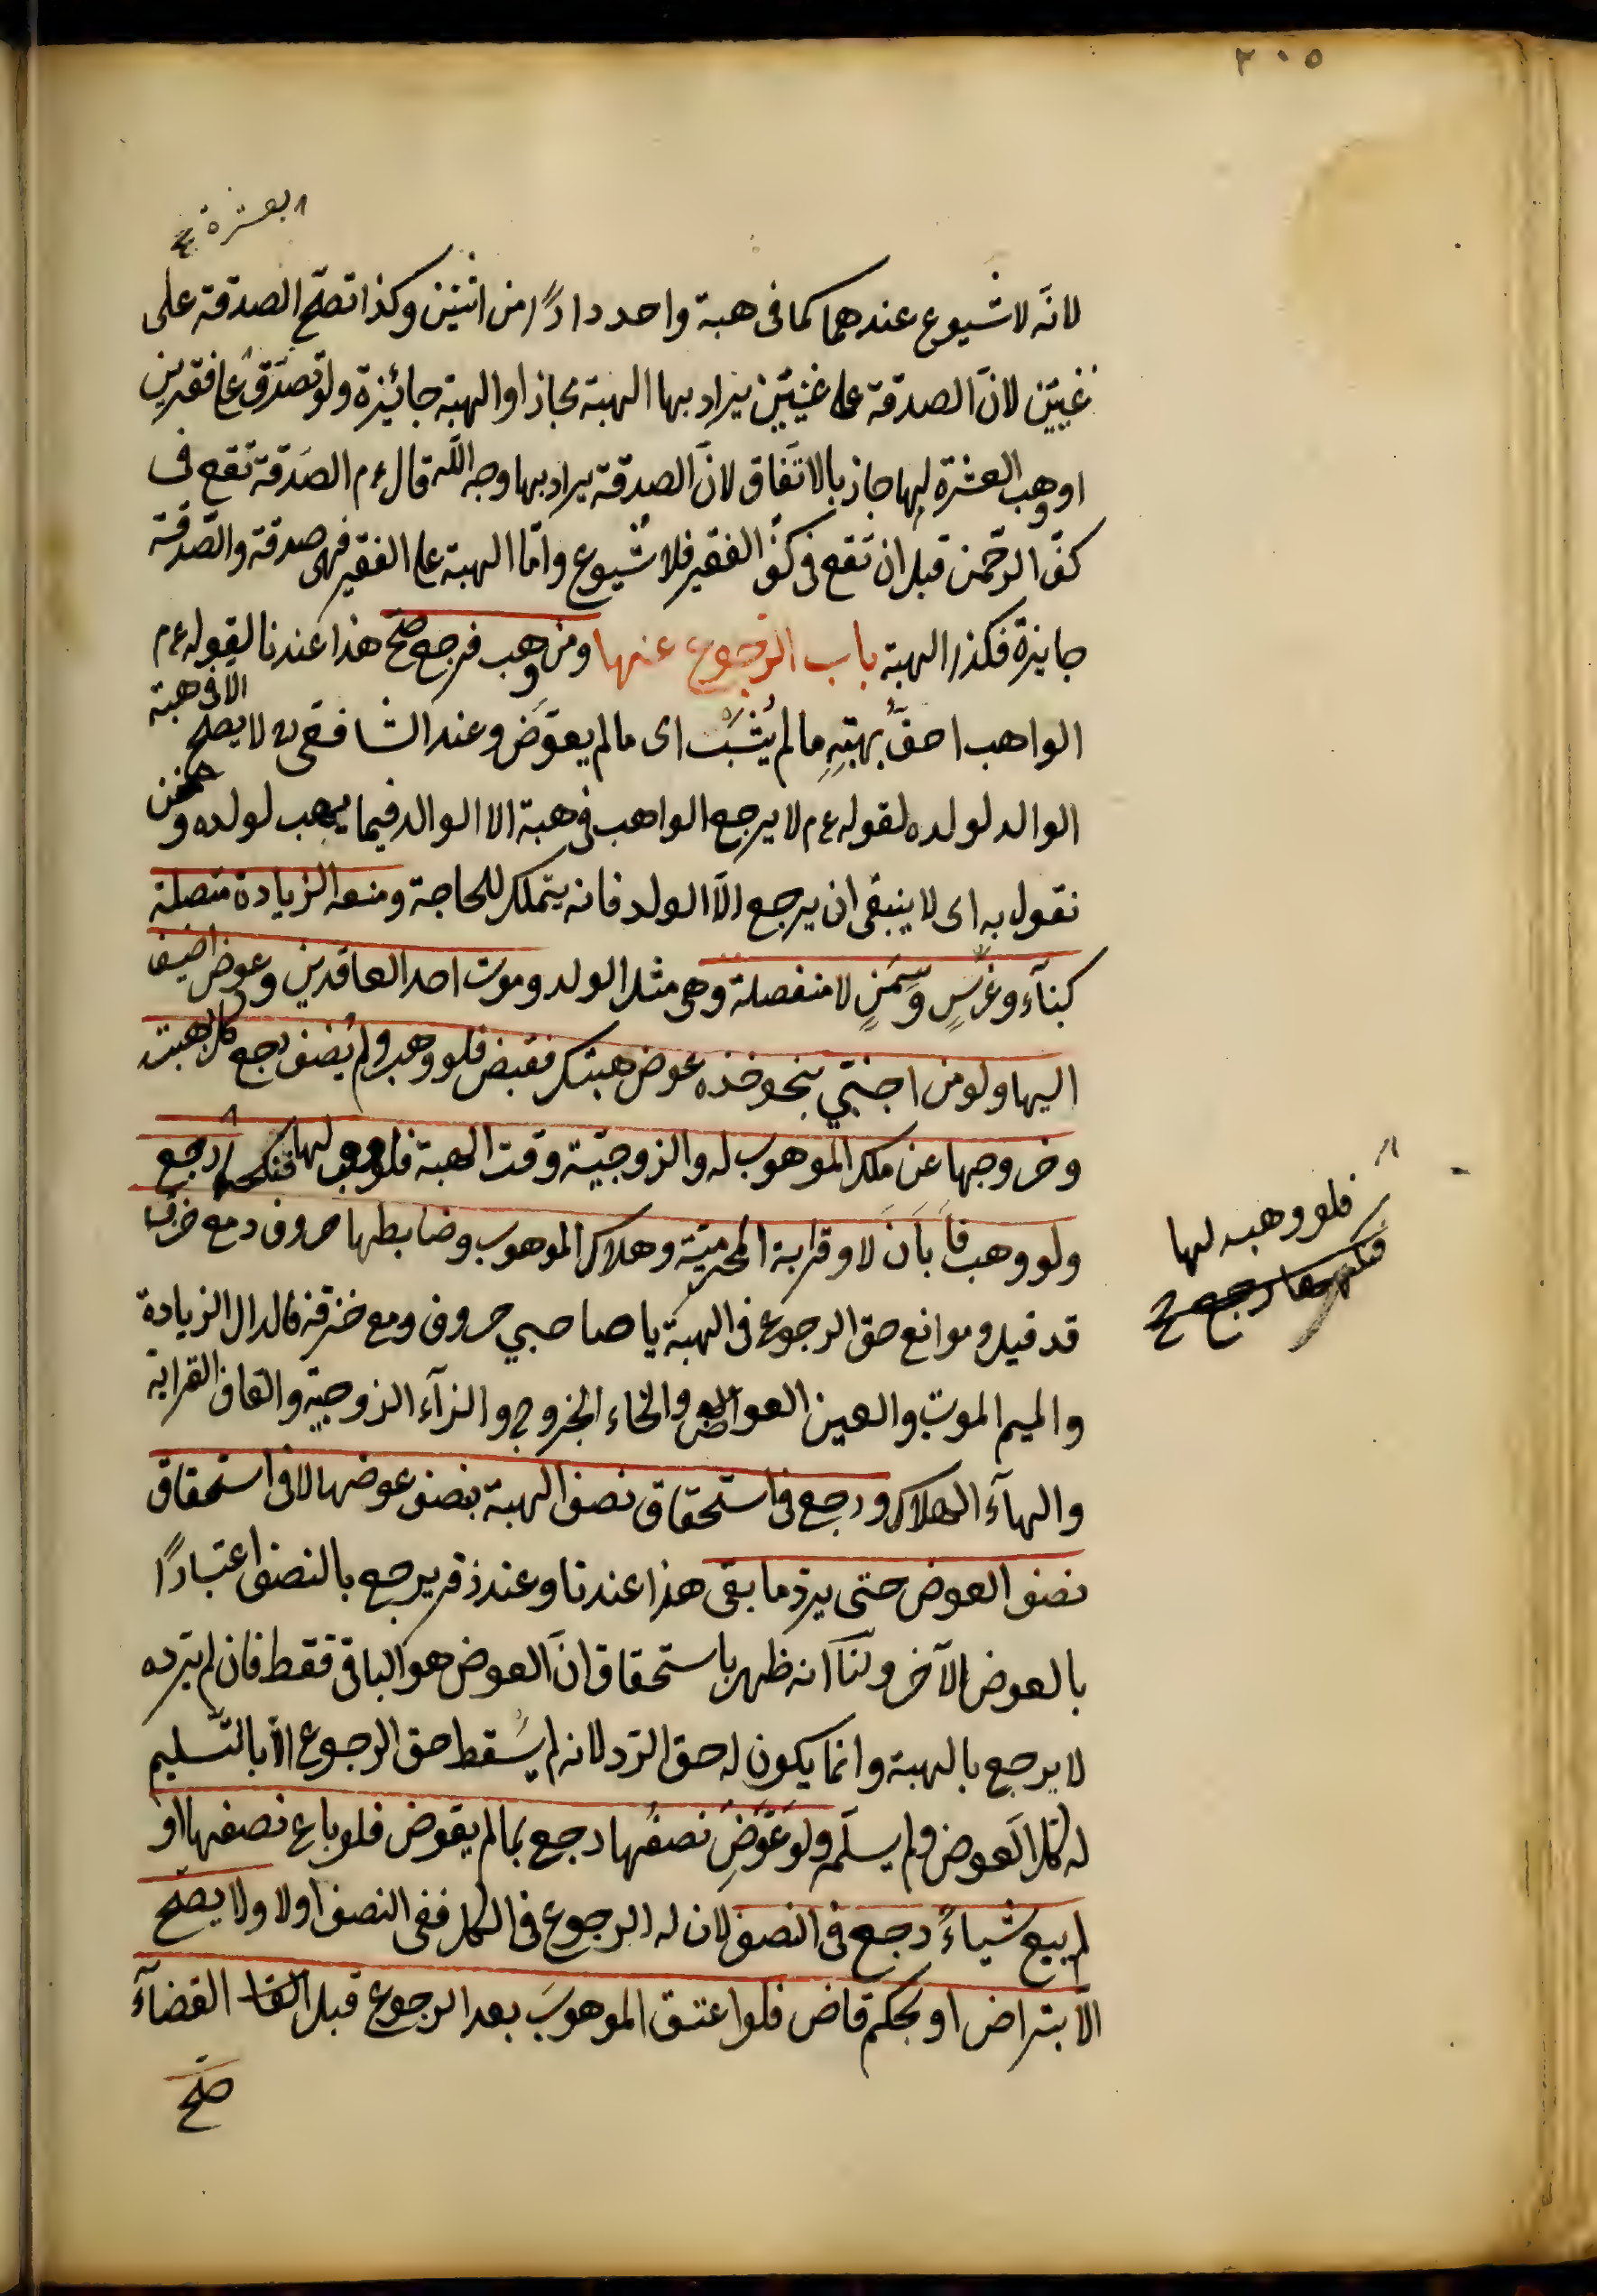 ٢٠٥
بعشرة صح
لانّه لا شيوع عندهما كما فى هبة واحد دارًا من اثنين وكذا تصحّ الصدقة على
غنيّين لانّ الصدقة على غنيّين يراد بها الهبة مجازا والهبة جائزة ولو تصدّق على فقيرين
او وهب العشرة لهما جاز بالاتّفاق لانّ الصدقة يراد بها وجه اللّه قال ءم الصّدقة تقع فى
كفّ الرحمن قبل ان تقع فى كفّ الفقير فلا شيوع وامّا الهبة على الفقير فهى صدقة والصّدقة
جايزة فكذا الهبة باب الرجوع عنها ومن وهب فرجع صحّ هذا عندنا لقوله ءم
الواهب احقّ بهبتِهِ ما لم يُثَبْ اى ما لم يعوّض وعند الشافعى لا يصح الا فى هبة
الوالد لولده لقوله ءم لا يرجع الواهب فى هبة الا الوالد فيما يهب لولده ونحن
نقول به اى لا ينبغى ان يرجع الّا الولد فانه يتملك للحاجة ومنعه الزيادة متصلة
كبنآء وغرسٍ وسِمَنٍ لا منفصلة وهى مثل الولد وموت احد العاقدين وعوض اضيف
اليها ولو من اجنبّي بنحو خذه عوض هبتك فقبض فلو وهب ولم يُضف رجع كل بهبته
وخروجها عن ملك الموهوب له والزوجيّة وقت الهبة فلو وهب لها فنكحها رجع
فلو وهب لها
فنكحها رجع صح
ولو وهب فاَبانَ لا وقرابة المحرميّة وهلاك الموهوب وضابطها حروف دمع خزقه
قد قيل وموانع حق الرجوع فى الهبة يا صاحبي حروف ومع خزقه فالدال الزيادة
والميم الموت والعين العوض والخاء الخروج والزآء الزوجيّة والقاف القرابة
والهآء الهلاك ورجع فى استحقاق نصف الهبة بنصف عوضها لا فى استحقاق
نصف العوض حتى يردّ ما بقى هذا عندنا وعند زفر يرجع بالنصف اعتبارًا
بالعوض الآخر ولنآ انه ظهر باستحقاق انّ العوض هو الباقى فقط فان لم يرده
لا يرجع بالهبة وانما يكون له حق الردّ لانه لم يسقط حق الرجوع الّا بالتّسليم
له كل العوض ولم يسلّمه ولو عُوّض نصفُها رجع بما لم يعوض فلو باع نصفها او
لم يبع شياءً رجع فى النصف لان له الرجوع فى الكل ففى النصف اولا ولا يصحّ
الّا بتراض او بحكم قاض فلو اعتق الموهوبَ بعد الرجوع قبل القضآء
صحّ